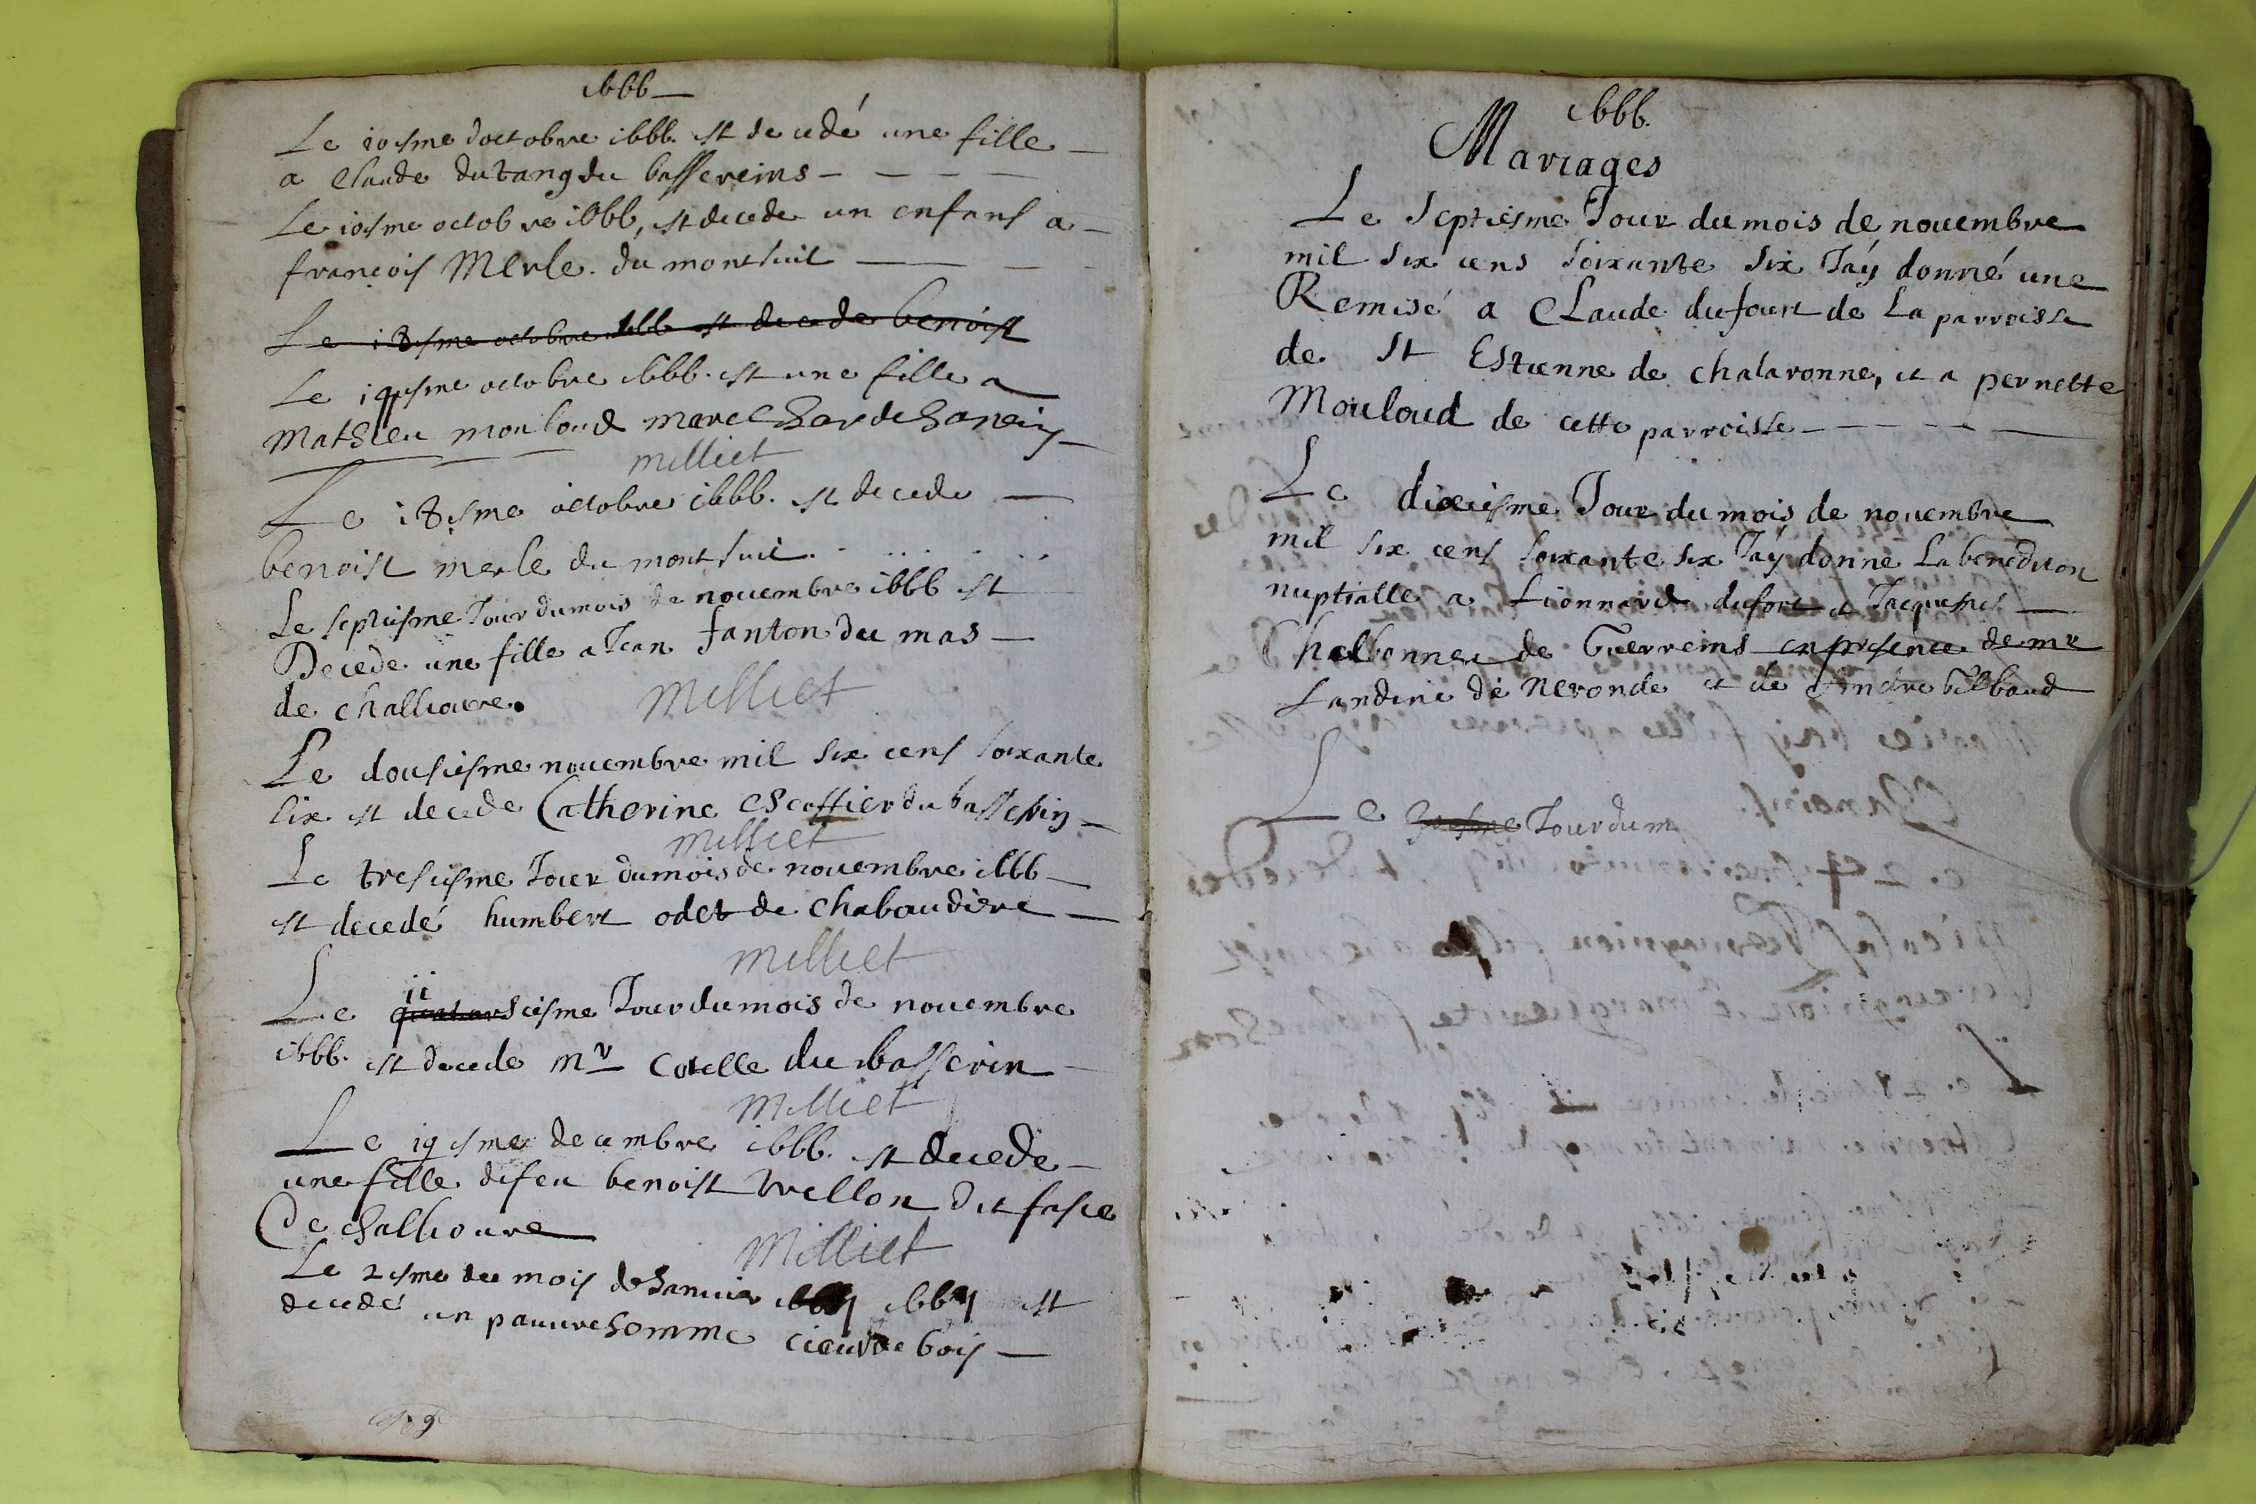 1666
Le 10esme doctobre 1666. est decedé une fille
a Claude dutang du bassereins
Le 10esme octobre 1666, est decede un enfans a
françois Merle. du montsuil
Le 18esme octobre 1666 est decede benoist
Le 19esme octobre 1666. est une fille a
Mathieu mouloud
milliet
Le 18esme octobre 1666. est decede
benoist merle du montsuil
Le septiesme Jour du mois de novembre 1666 est
Decede une fille a Jean fanton du mas
de challioure.
Milliet
Le dousiesme novembre mil six cens soixante
six est decede Catherine escoffier du basserin
milliet
Le tresiesme Jour du mois de novembre 1666
est decedé humbert odet de chabaudiere
milliet
ii
Le quatorsciesme Jour du mois de novembre
1666. est decede mr Cotelle du basserin
milliet
Le 19esme decembre 1666. est decede
une fille defeu benoist dit
De challioure
Milliet
Le 2esme du mois de Janvier 1667 est
decedé un pauure homme cieur de bois
1666.
Mariages
Le Septiesme Jour du mois de nouembre
mil six cens soixante six Jaÿ donné une
Remise a Claude dufour de La parroisse
de St Estienne de chalaronne, et a pernette
Mouloud de cette parroisse
Le dixiesme Jour du mois de nouembre
mil six cens soixante six Jaÿ donne La benediction
nuptialle a Lionnard dufort et Jacquesne
Chalbonne de Guerreins en presence de mr
Landine de Neronde et de Andre Tilbaud
Le Jour du m